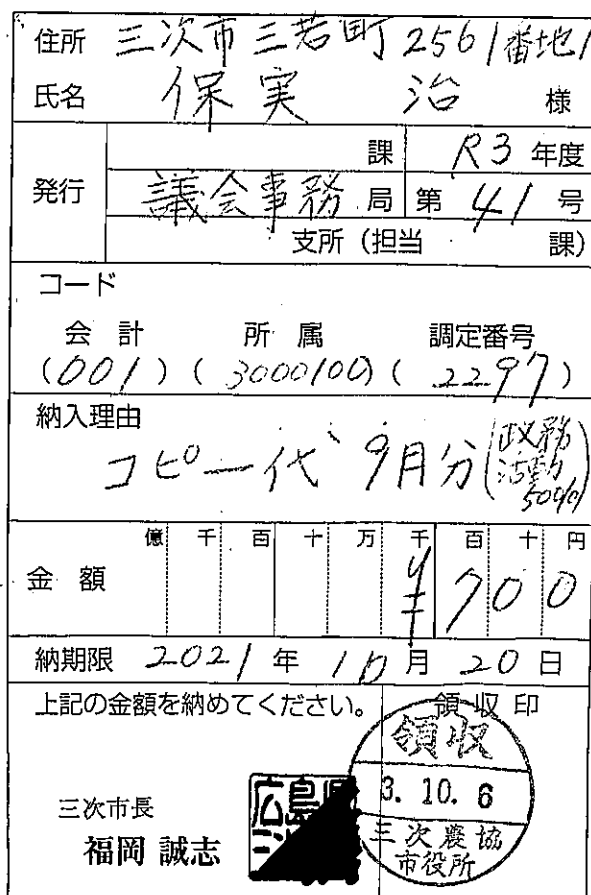 住所 三次市三若町2561番地1
氏名 保実 治 様
発行
課 R3年度
議会事務局 第41号
支所(担当 課)
コード
会計 所属 調定番号
(001)(3000100)(2297)
納入理由
コピー代 9月分(政務活動50%)
億 千 百 十 万 千 百 十 円
金額 ¥700
納期限 2021年10月20日
上記の金額を納めてください。 領収印
領収
3.10.6
三次農協
市役所
三次市長
福岡 誠志
広島